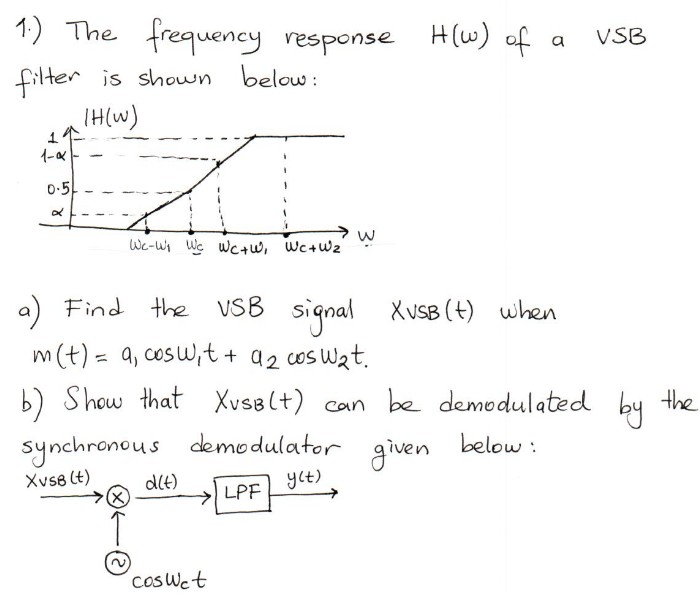 1.) The frequency response H(w) of a VSB
filter is shown below:
|H(w)
1
1-α
0.5
α
wc-w1 wc wc+w1 wc+w2 w
a) Find the VSB signal XVSB(t) when
m(t) = a1 cosw1t + a2 cosw2t.
b) Show that XVSB(t) can be demodulated by the
synchronous demodulator given below:
XVSB(t) d(t) LPF y(t)
coswct